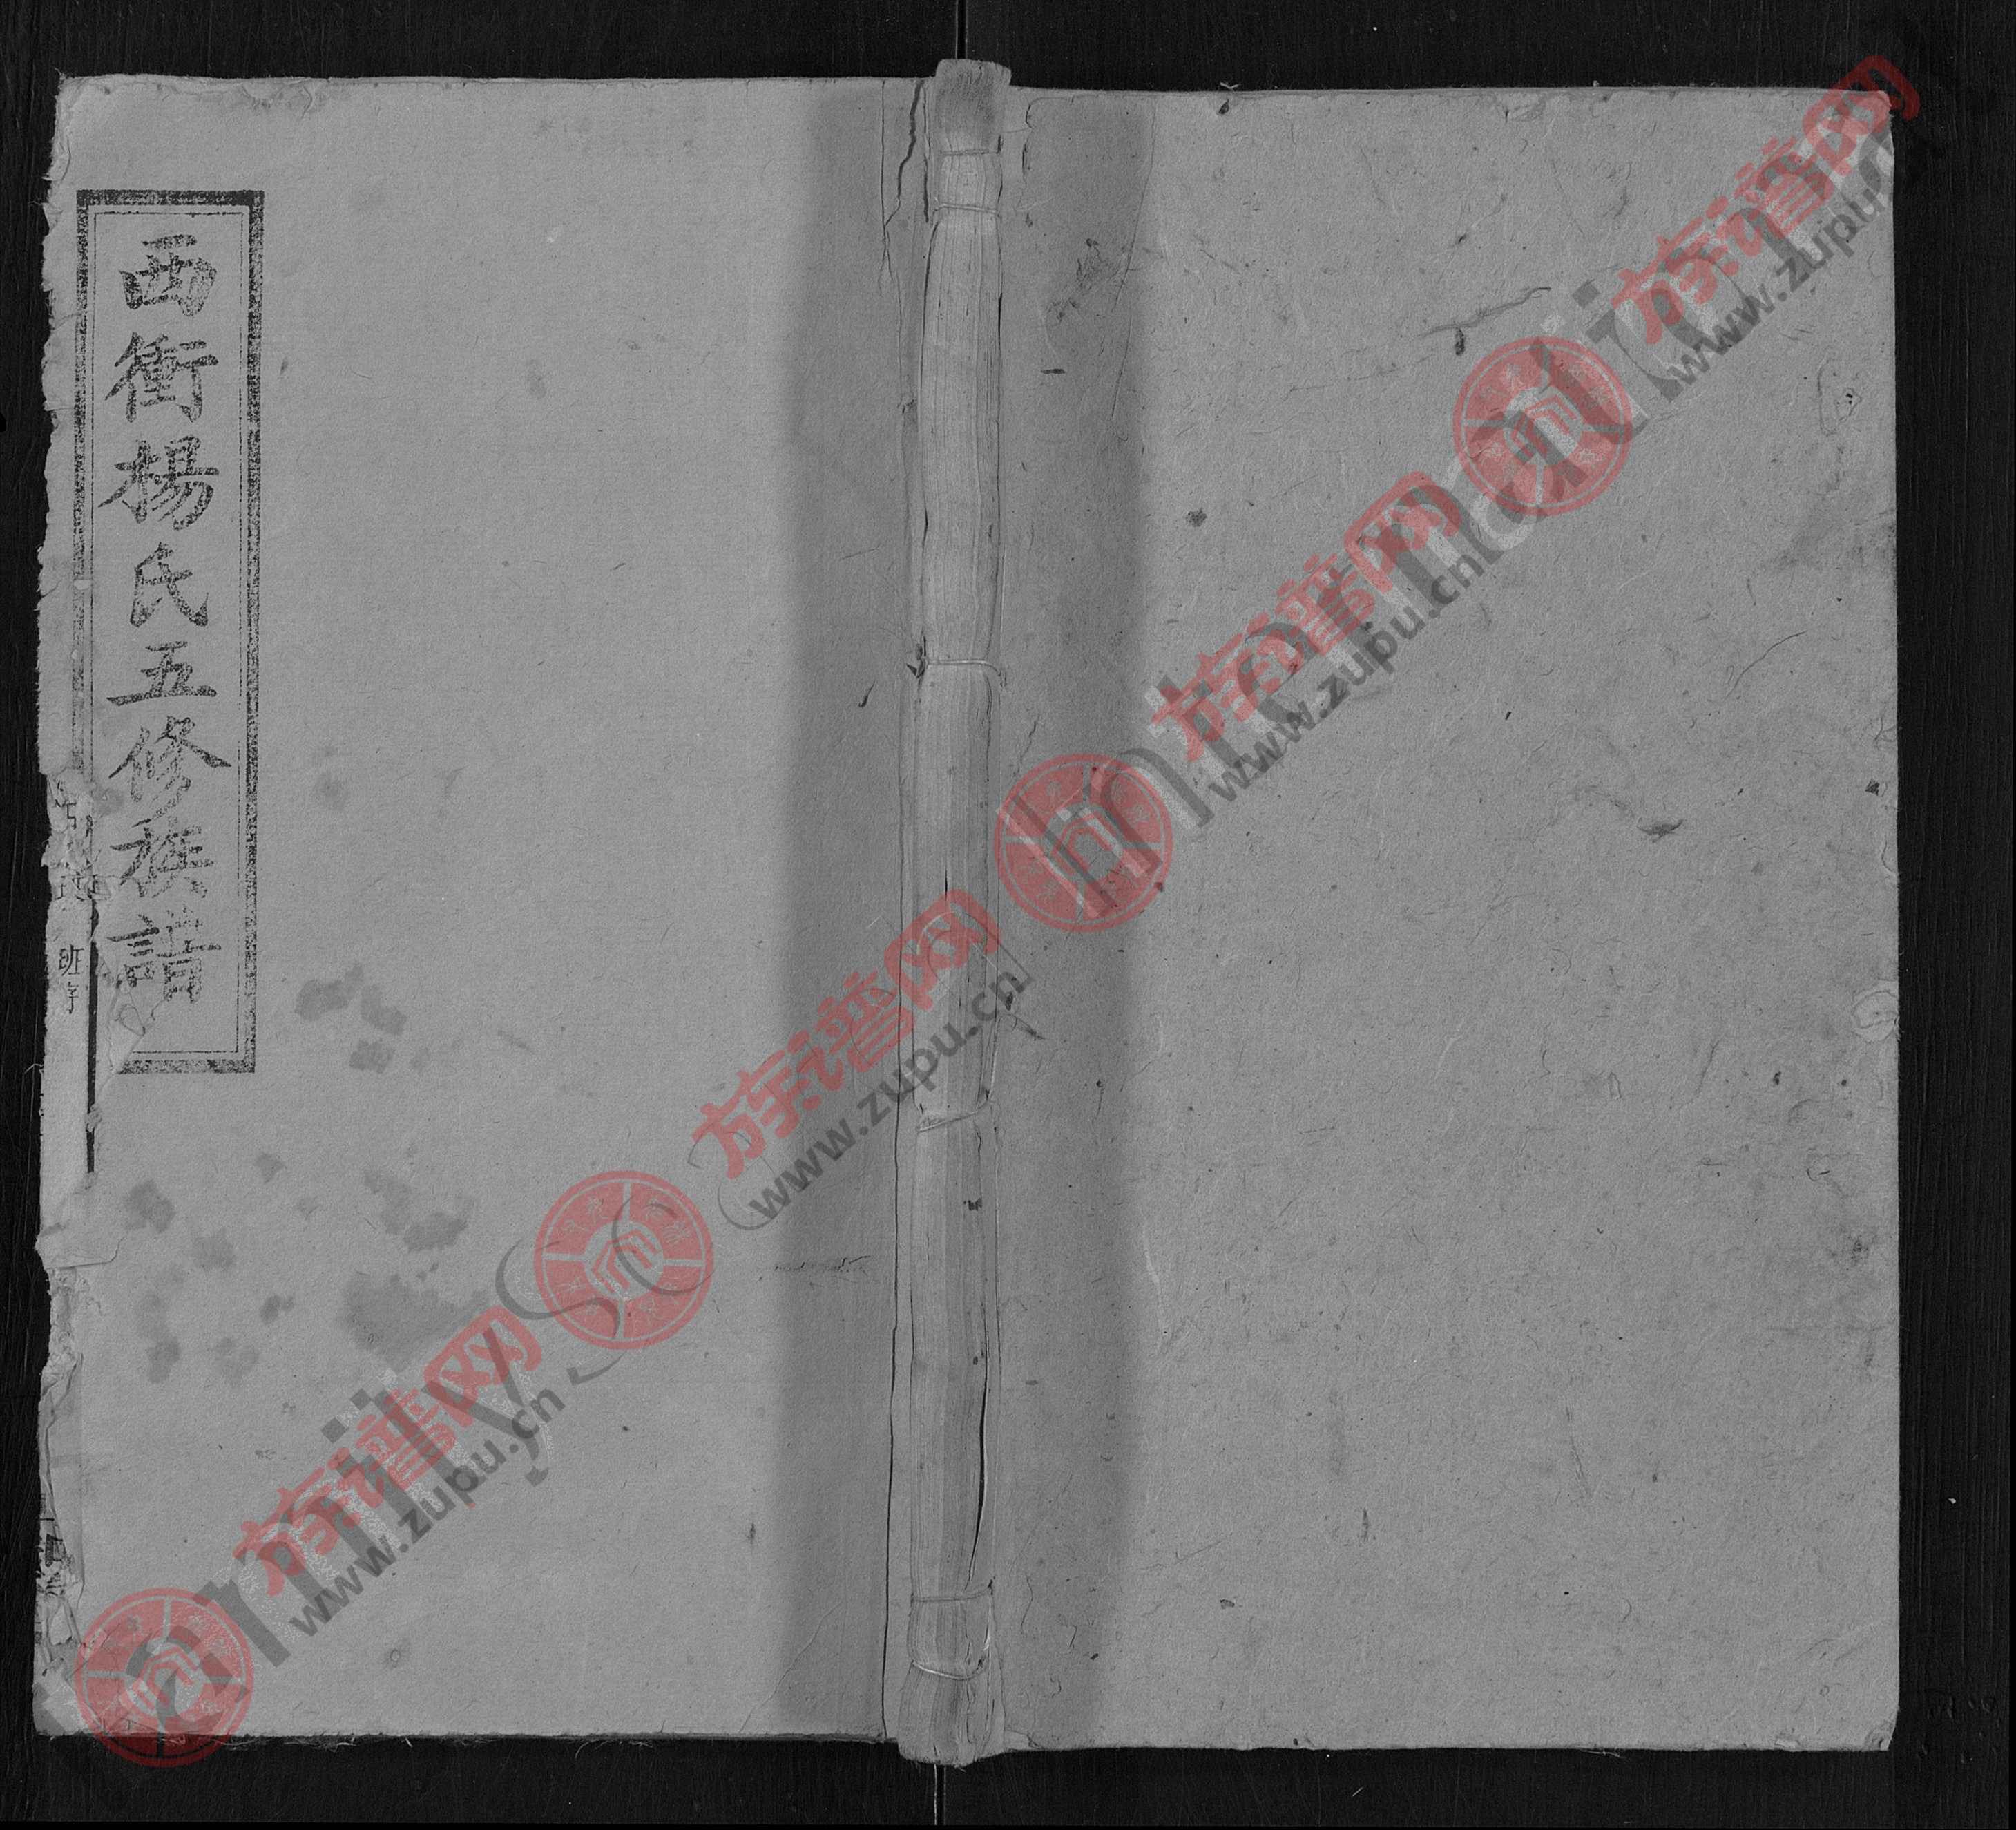 西衝楊氏五修族譜
班序
族谱网
www.zupu.cn
族谱网
www.zupu.cn
族谱网
www.zupu.cn
族谱网
www.zupu.cn